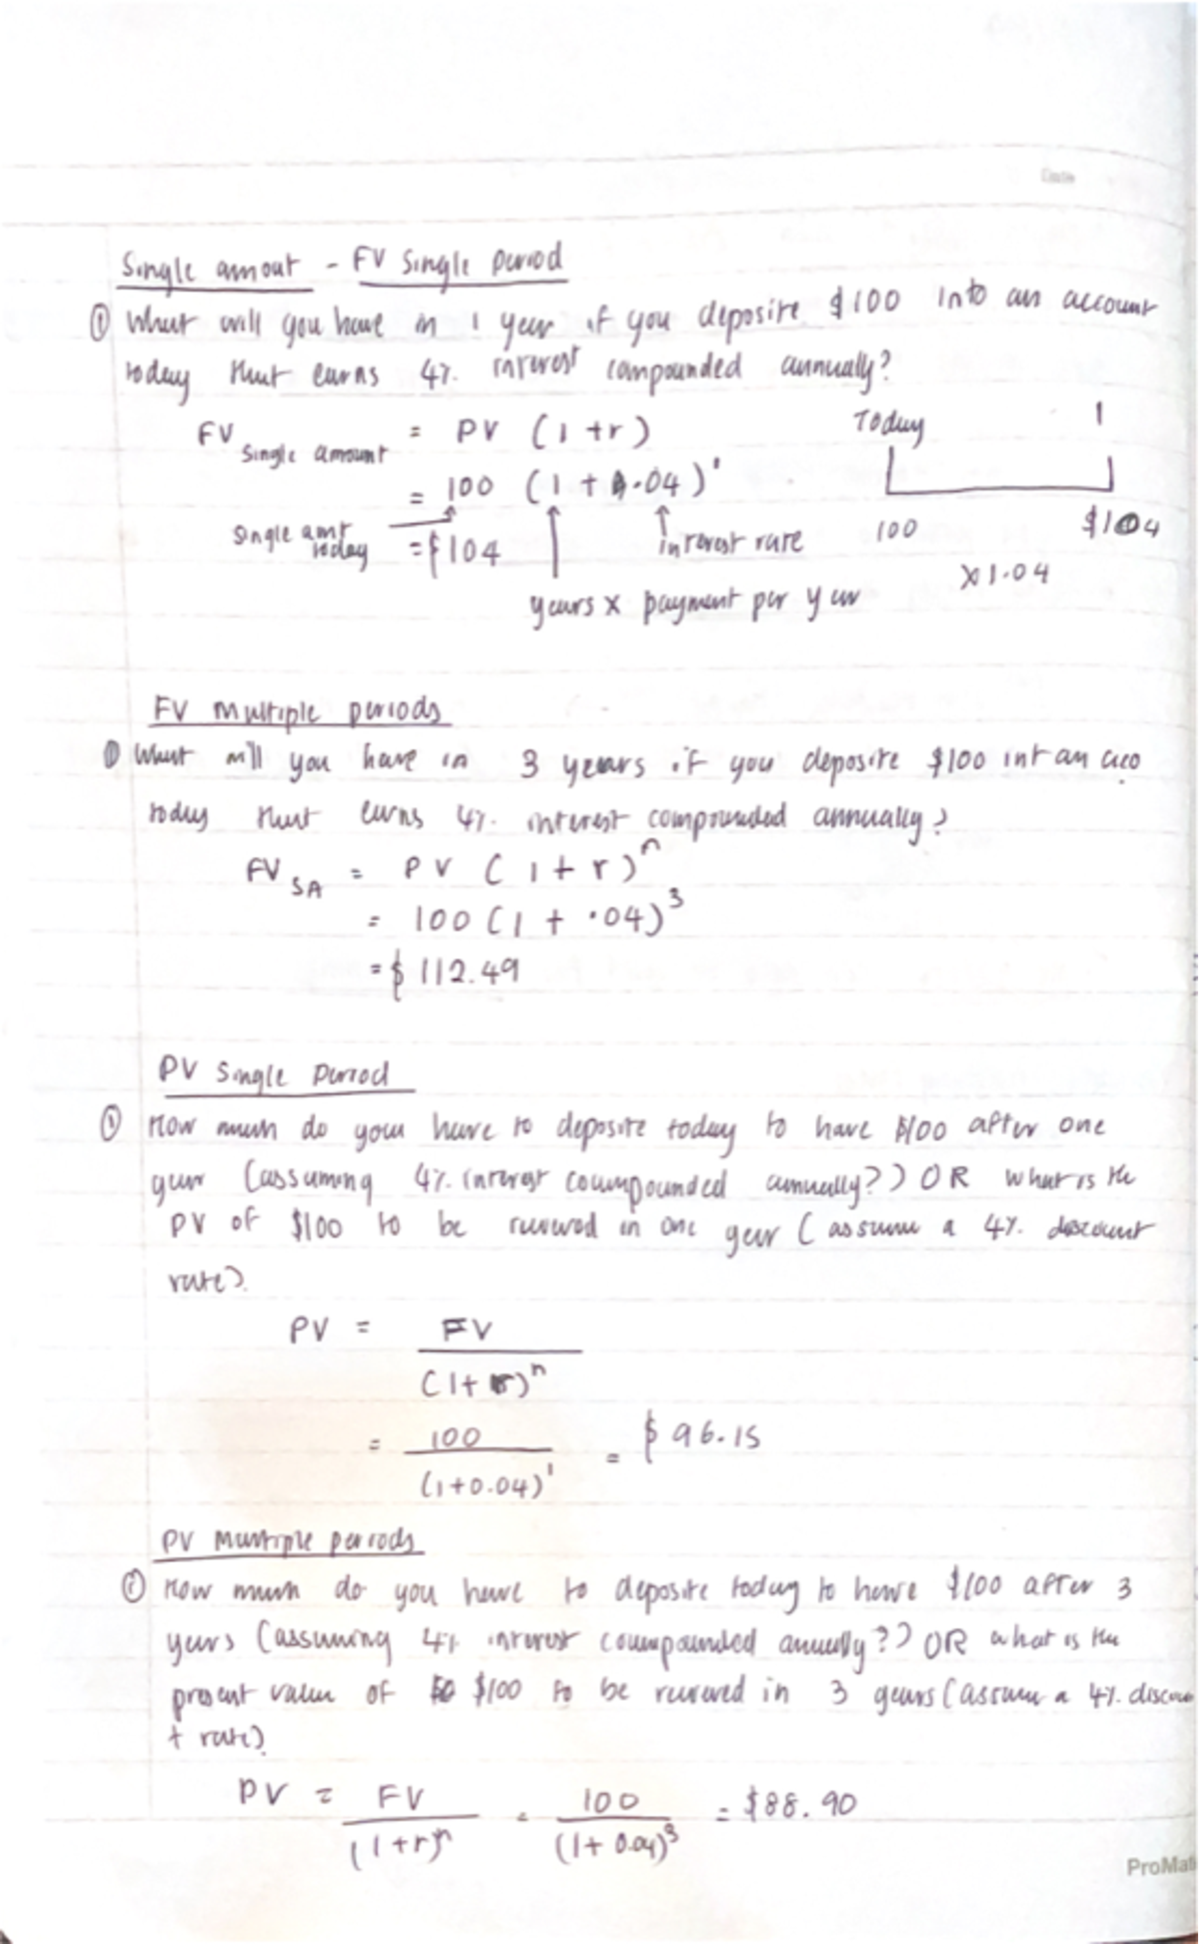 Date
Single amout - FV Single Period
① What will you have in 1 year if you deposite $100 into an account
today that earns 4% interest compounded annually?
FV Single amount = PV (1+r)
= 100 (1+0.04)¹
Single amt today
= $104
interest rate
years x payment per year
Today 1
100 $104
x1.04
FV Multiple periods
① What will you have in 3 years if you deposite $100 int an acco
today that earns 4% interest compounded annually?
FV SA = PV (1+r)ⁿ
= 100 (1 + .04)³
= $112.49
PV Single Period
① How much do you have to deposite today to have $100 after one
year (assuming 4% interest coumpounded annually?) OR what is the
PV of $100 to be received in one year (assume a 4% discount
rate).
PV = FV
(1+r)ⁿ
= 100 = $96.15
(1+0.04)¹
PV Multiple periods
How much do you have to deposite today to have $100 after 3
years (assuming 4% interest coumpounded annually?) OR what is the
present value of $100 to be received in 3 years (assume a 4% discou
t rate).
PV = FV = 100 = $88.90
(1+r)ⁿ (1+0.04)³
ProMat